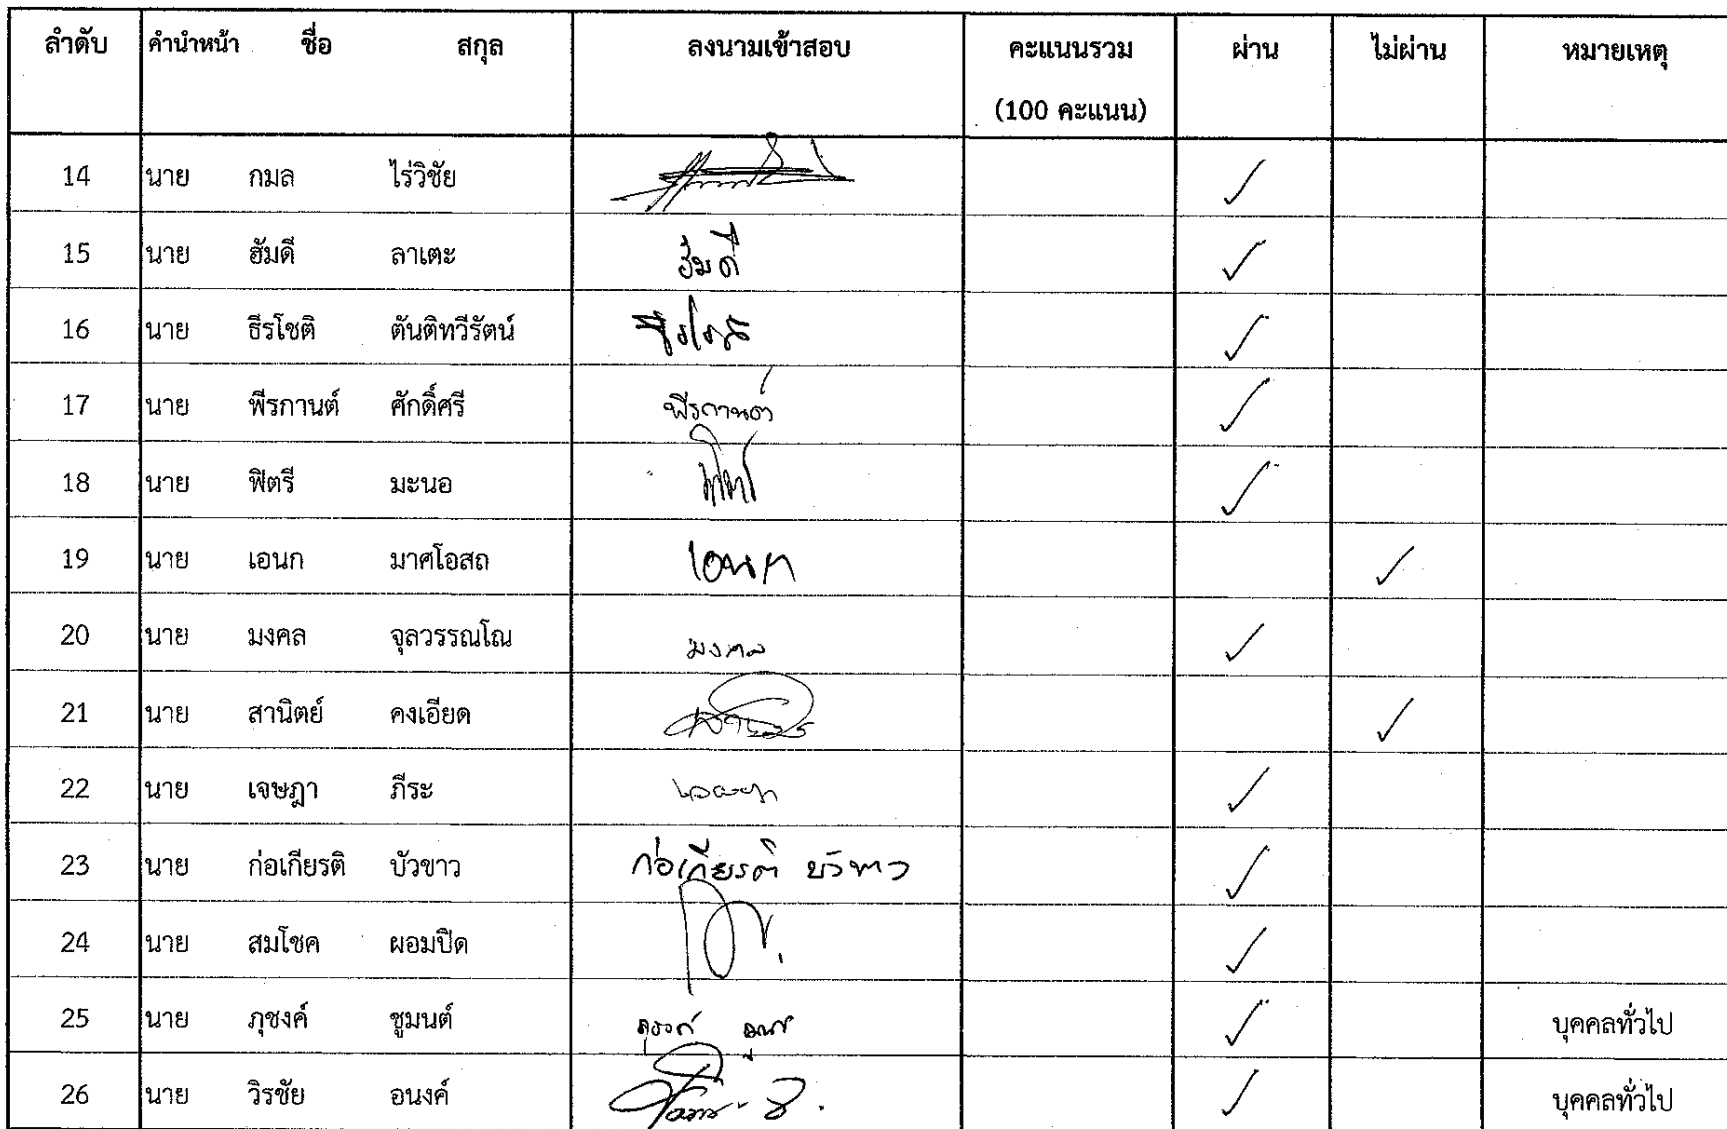 ลำดับ คำนำหน้า ชื่อ สกุล ลงนามเข้าสอบ คะแนนรวม ผ่าน ไม่ผ่าน หมายเหตุ
(100 คะแนน)
14 นาย กมล ไร่วิชัย ✓
15 นาย ฮัมดี ลาเตะ ฮัมดี ✓
16 นาย ธีรโชติ ตันติทวีรัตน์ ธีรโชติ ✓
17 นาย พีรกานต์ ศักดิ์ศรี พีรกานต์ ✓
18 นาย ฟิตรี มะนอ ✓
19 นาย เอนก มาศโอสถ เอนก ✓
20 นาย มงคล จุลวรรณโณ มงคล ✓
21 นาย สานิตย์ คงเอียด ✓
22 นาย เจษฎา ภีระ ✓
23 นาย ก่อเกียรติ บัวขาว ก่อเกียรติ บัวขาว ✓
24 นาย สมโชค ผอมปิด ✓
25 นาย ภุชงค์ ชูมนต์ ✓ บุคคลทั่วไป
26 นาย วิรชัย อนงค์ ✓ บุคคลทั่วไป